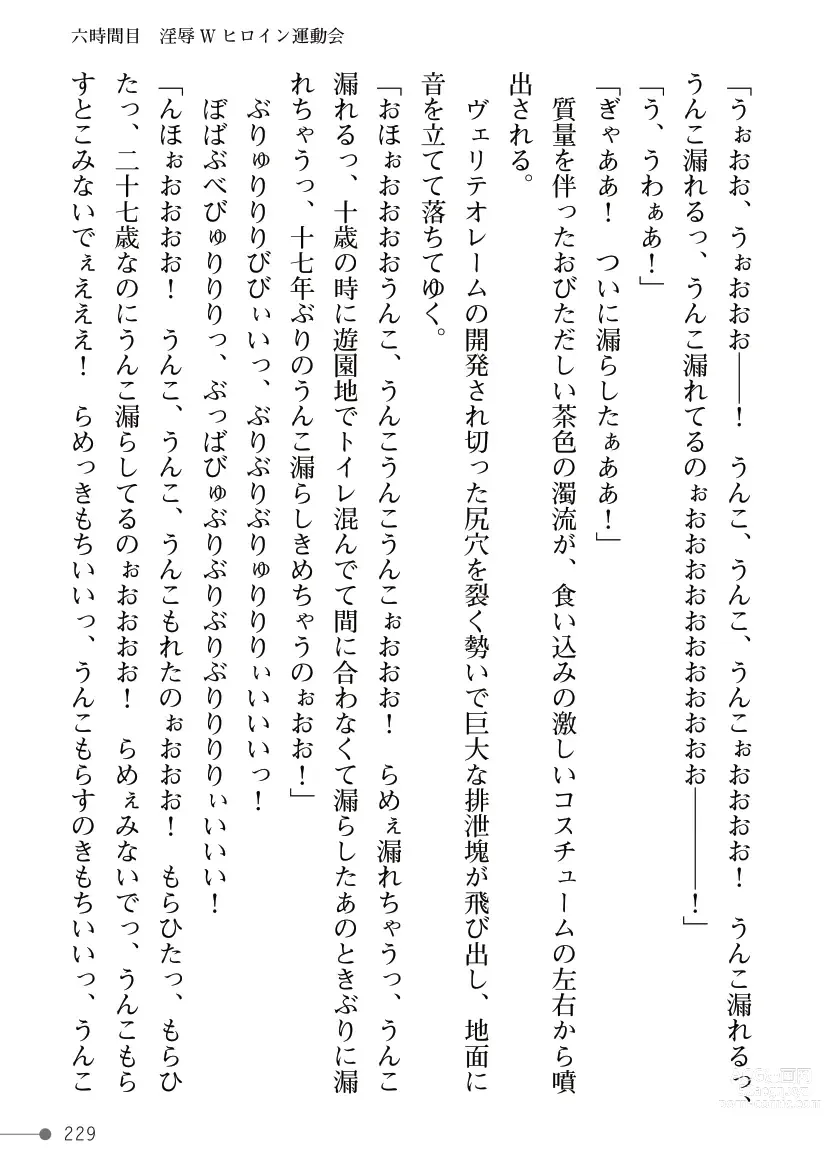 六時間目　淫辱Wヒロイン運動会
「うぉおお、うぉおおお――！　うんこ、うんこ、うんこぉおおおお！　うんこ漏れるっ、
うんこ漏れるっ、うんこ漏れてるのぉおおおおおおおおおおおおお――――！」
「う、うわぁあ！」
「ぎゃああ！　ついに漏らしたぁああ！」
　質量を伴ったおびただしい茶色の濁流が、食い込みの激しいコスチュームの左右から噴
出される。
　ヴェリテオレームの開発され切った尻穴を裂く勢いで巨大な排泄塊が飛び出し、地面に
音を立てて落ちてゆく。
「おほぉおおおおうんこ、うんこうんこうんこぉおおお！　らめぇ漏れちゃうっ、うんこ
漏れるっ、十歳の時に遊園地でトイレ混んでて間に合わなくて漏らしたあのときぶりに漏
れちゃうっ、十七年ぶりのうんこ漏らしきめちゃうのぉおお！」
　ぶりゅりりりびびぃいっ、ぶりぶりぶりゅりりりぃいいいっ！
　ぼばぶべびゅりりりっ、ぶっばびゅぶりぶりぶりぶりりりりぃいいい！
「んほぉおおおお！　うんこ、うんこ、うんこもれたのぉおおお！　もらひたっ、もらひ
たっ、二十七歳なのにうんこ漏らしてるのぉおおおお！　らめぇみないでっ、うんこもら
すとこみないでぇえええ！　らめっきもちいいっ、うんこもらすのきもちいいっ、うんこ
229